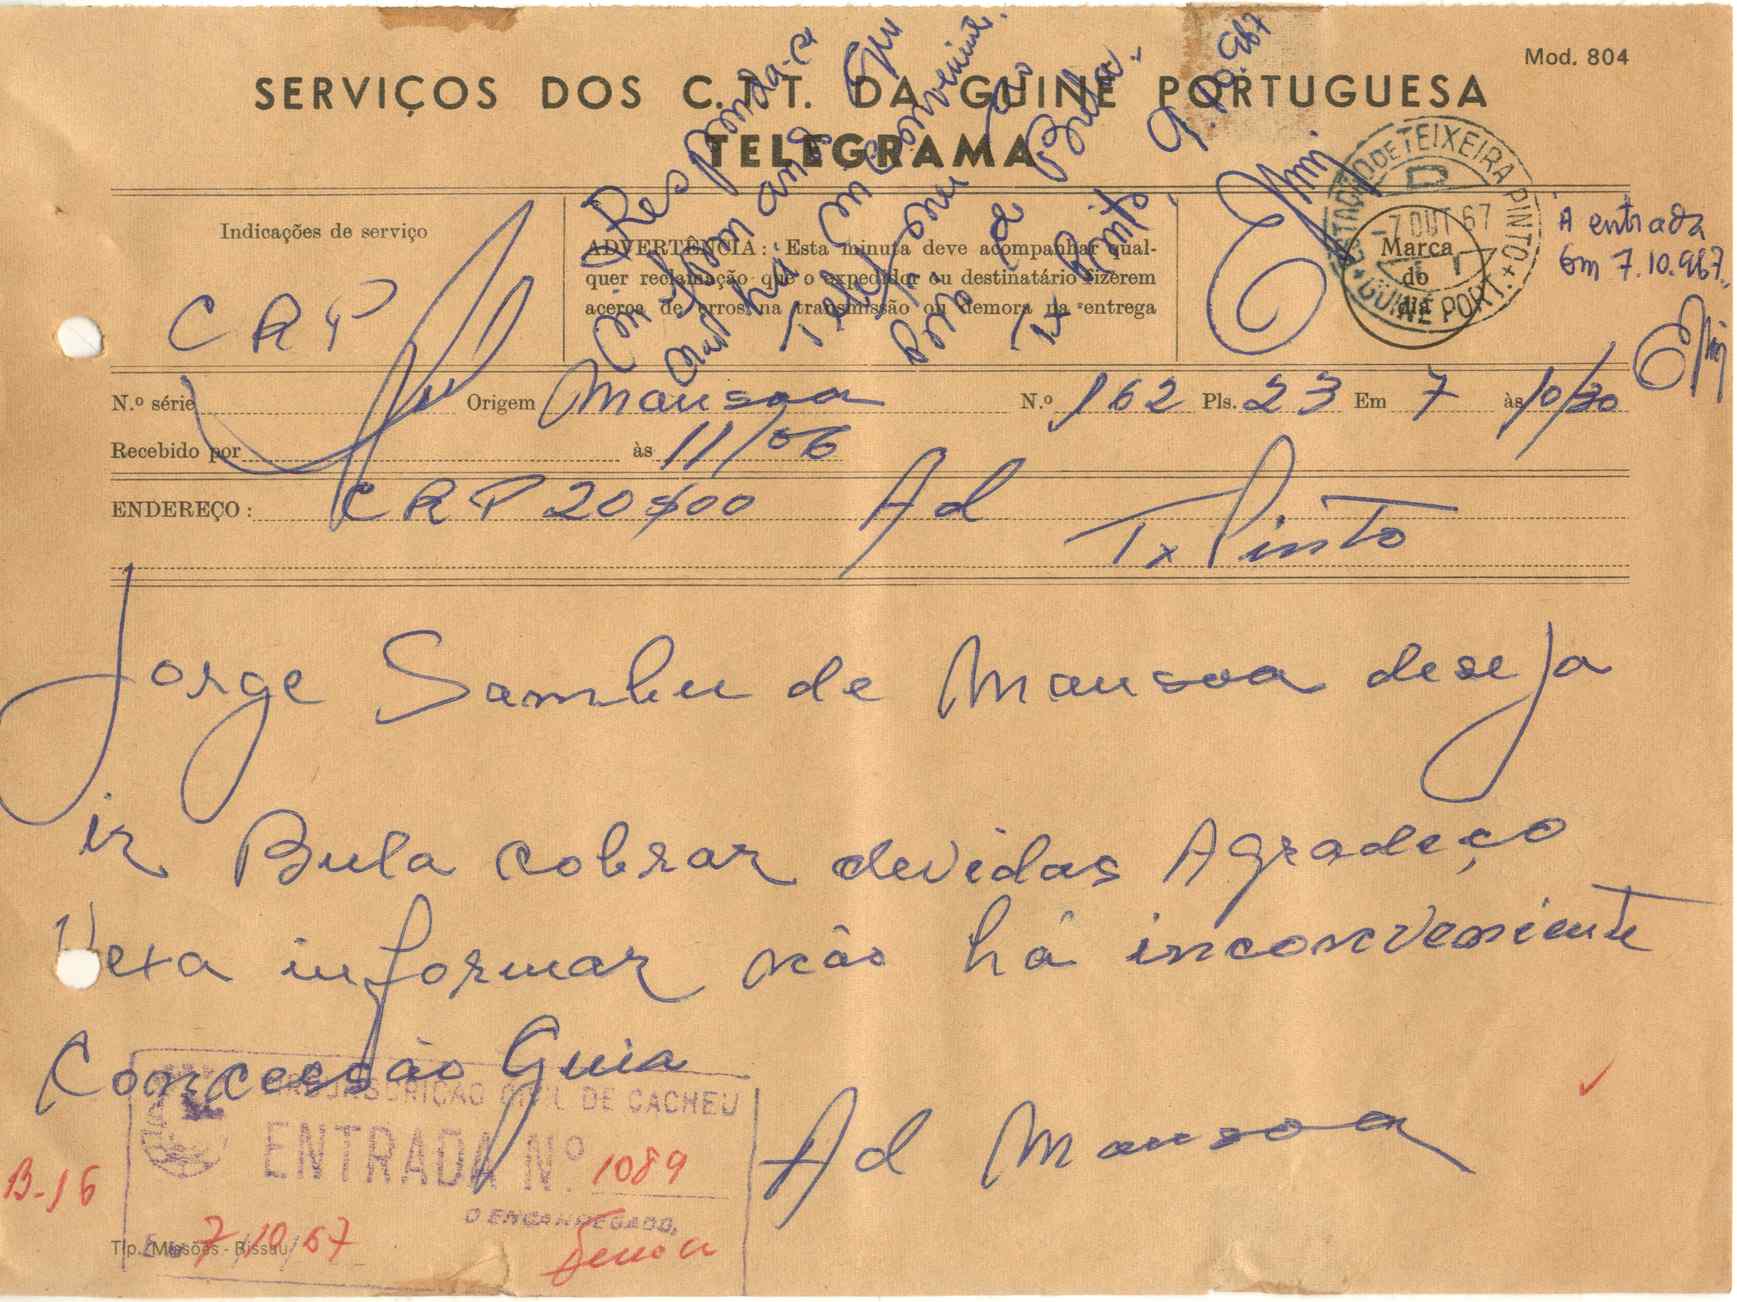 Mod. 804
SERVIÇOS DOS C.T.T. DA GUINÉ PORTUGUESA
TELEGRAMA
Responda-se
não há inconveniente
9.10.967
Indicações de serviço
CRP
ADVERTÊNCIA: Esta minuta deve acompanhar qual-
quer reclamação que o expedidor ou destinatário fizerem
acerca de erros na transmissão ou demora na entrega
ESTAÇÃO DE TEIXEIRA PINTO
-7 OUT 67
GUINÉ PORT.
Marca
do
dia
À entrada
Em 7.10.967.
N.º série Origem Mansoa N.º 162 Pls. 23 Em 7 às 10/30
Recebido por às 11/06
ENDEREÇO: CRP 20$00 Ad
Tx Pinto
Jorge Sambu de Mansoa deseja
ir Bula cobrar devidas Agradeço
Vexa informar não há inconveniente
Concessão Guia
Ad Mansoa
CIRCUNSCRIÇÃO CIVIL DE CACHEU
ENTRADA N.º 1089
B-16
O ENCARREGADO,
Em 7/10/67
Tip. Missões - Bissau